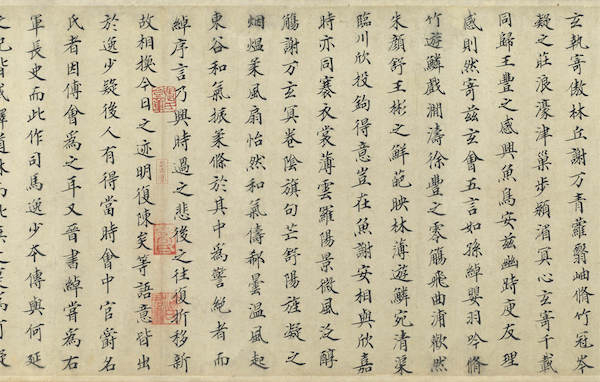 玄執寄傲林丘謝万青蘿翳岫脩竹冠岑
凝之莊浪濠津巢步潁湄真心玄寄千載
同歸王豐之感興魚鳥安茲幽時庾友理
感則然寄茲玄會五言如孫綽嬰羽吟脩
竹遊鱗戲瀾濤徐豐之零觴飛曲浦歡然
朱顏舒王彬之鮮葩映林薄遊鱗宛清渠
臨川欣投鉤得意豈在魚謝安相與欣嘉
時亦同褰衣裳薄雲羅陽景微風泛醇
觴謝万玄冥卷陰旗句芒舒陽旌凝之
烟熅柔風扇怡然和氣儔郗曇溫風起
東谷和氣振柔條於其中為警絕者而
綽序言乃興時過之悲後之往復折移新
故相換今日之迹明復陳矣等語意皆出
於逸少疑後人有得當時會中官爵名
氏者因傅會為之耳又晉書綽嘗為右
軍長史而此作司馬逸少本傳與何延